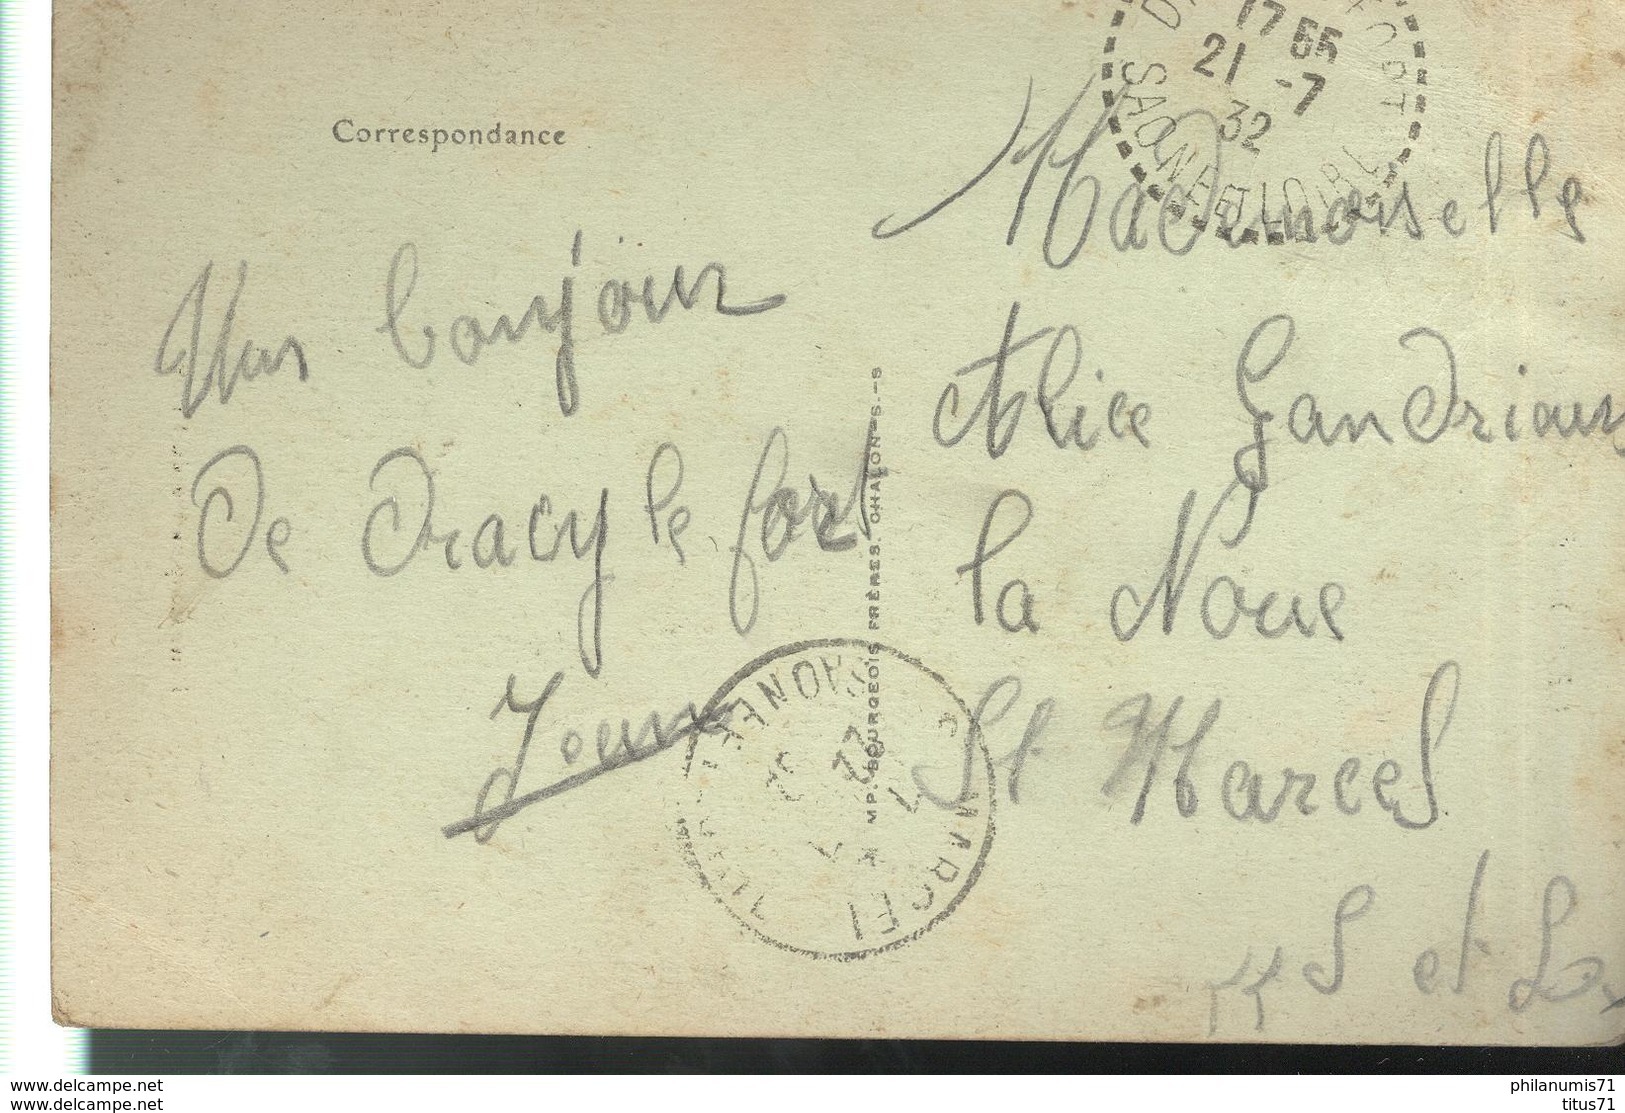 Correspondance
Un bonjour
De Dracy le fort
MP. BOURGEOIS FRÈRES. CHALON-S.-S
17 55
21 -7
32
SAONE ET LOIRE
Mademoiselle
Alice Gandriau
la Noue
St Marcel
S et L
22
7
SAONE ET
MARCEL
www.delcampe.net
titus71
philanumis71
titus71